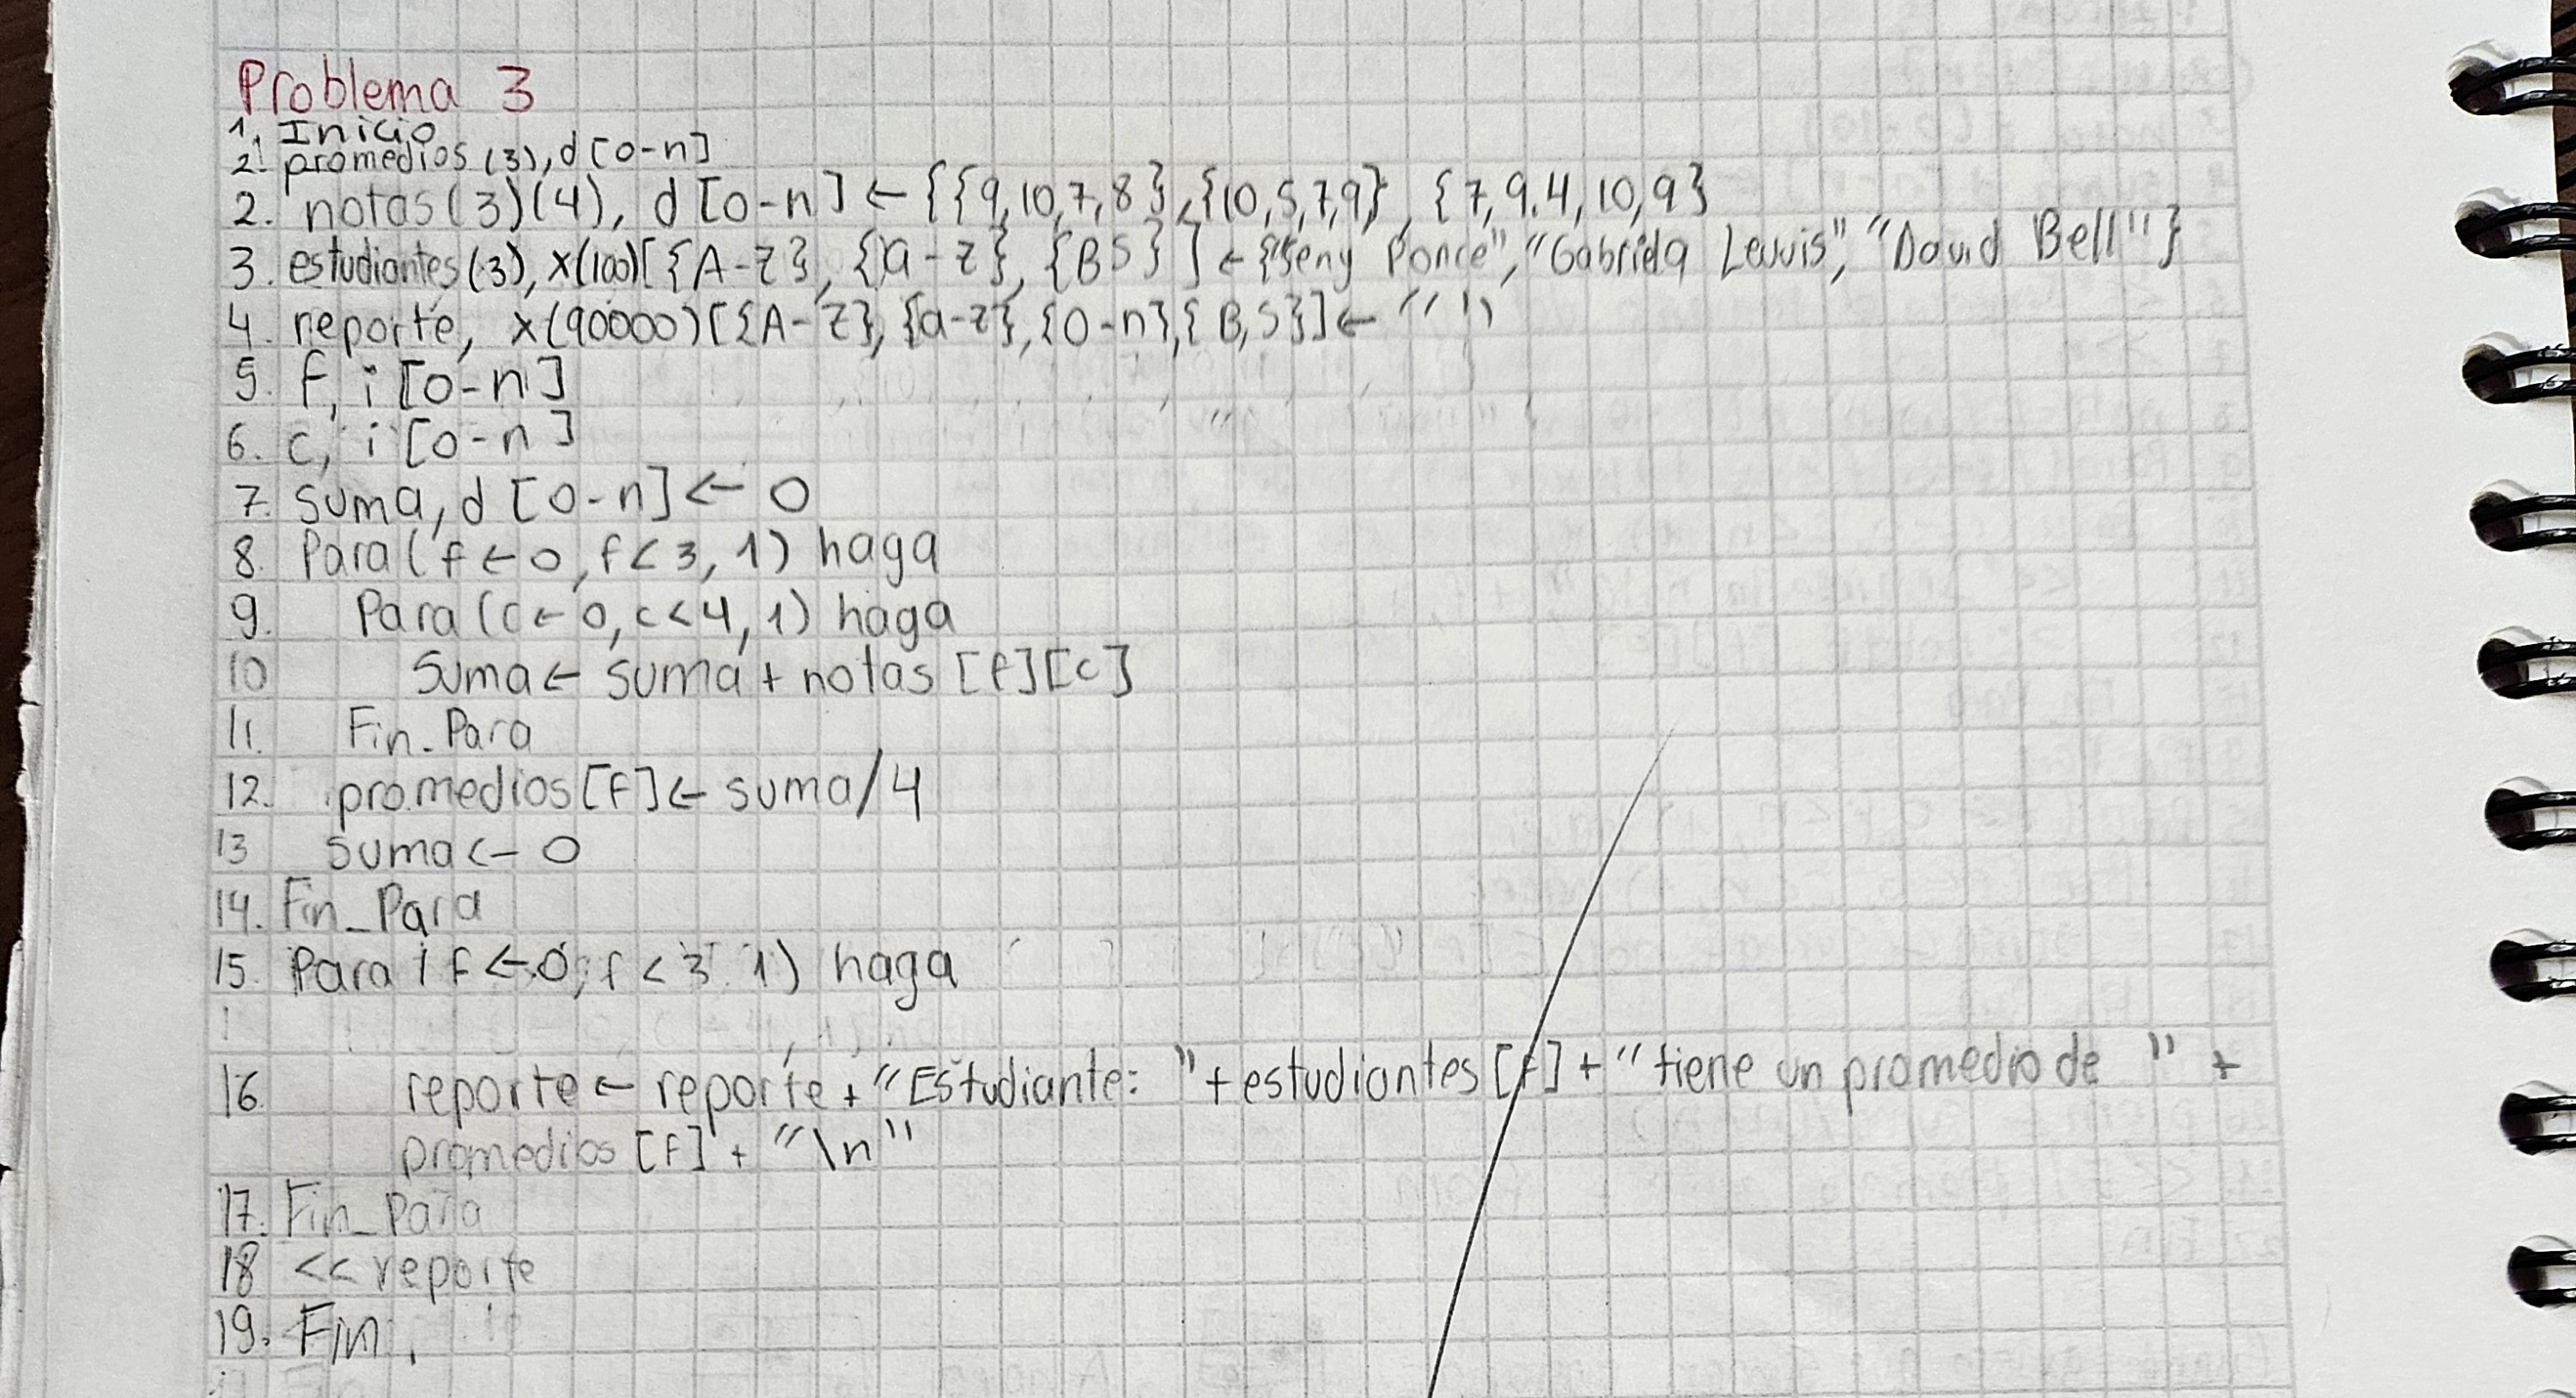 Problema 3
1. Inicio
2. promedios (3), d [0-n]
2. notas (3)(4), d [0-n] ← {{9,10,7,8},{10,5,7,9}, {7,9.4,10,9}
3. estudiantes (3), x(100)[{A-Z}, {a-z}, {BS}] ← {"Seny Ponce", "Gabriela Lewis", "David Bell"}
4. reporte, x(90000)[{A-Z}, {a-z}, {0-n}, {B,S}] ← " "
5. f, i [0-n]
6. c, i [0-n]
7. suma, d [0-n] ← 0
8. Para (f ← 0, f < 3, 1) haga
9. Para (c ← 0, c < 4, 1) haga
10 Suma ← suma + notas [f][c]
11. Fin_Para
12. promedios [f] ← suma/4
13 suma ← 0
14. Fin_Para
15. Para (f ← 0, f < 3, 1) haga
16. reporte ← reporte + "Estudiante: " + estudiantes [f] + "tiene un promedio de " +
promedios [f] + "\n"
17. Fin_Para
18 << reporte
19. Fin.